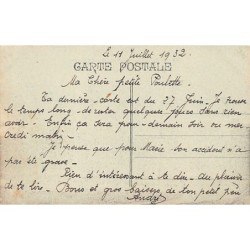 Le 11 Juillet 1932
CARTE POSTALE
Ma Chère petite Poulette
Ta dernière carte est du 27 Juin. Je trouve
le temps long de rester quelques jours sans rien
avoir. Enfin ça sera pour demain soir ou mer
credi matin.
Je pense que pour Marie son accident n'a
pas été grave.
Rien d'intéressant à te dire. Au plaisir
de te lire. Bons et gros baisers de ton petit
André